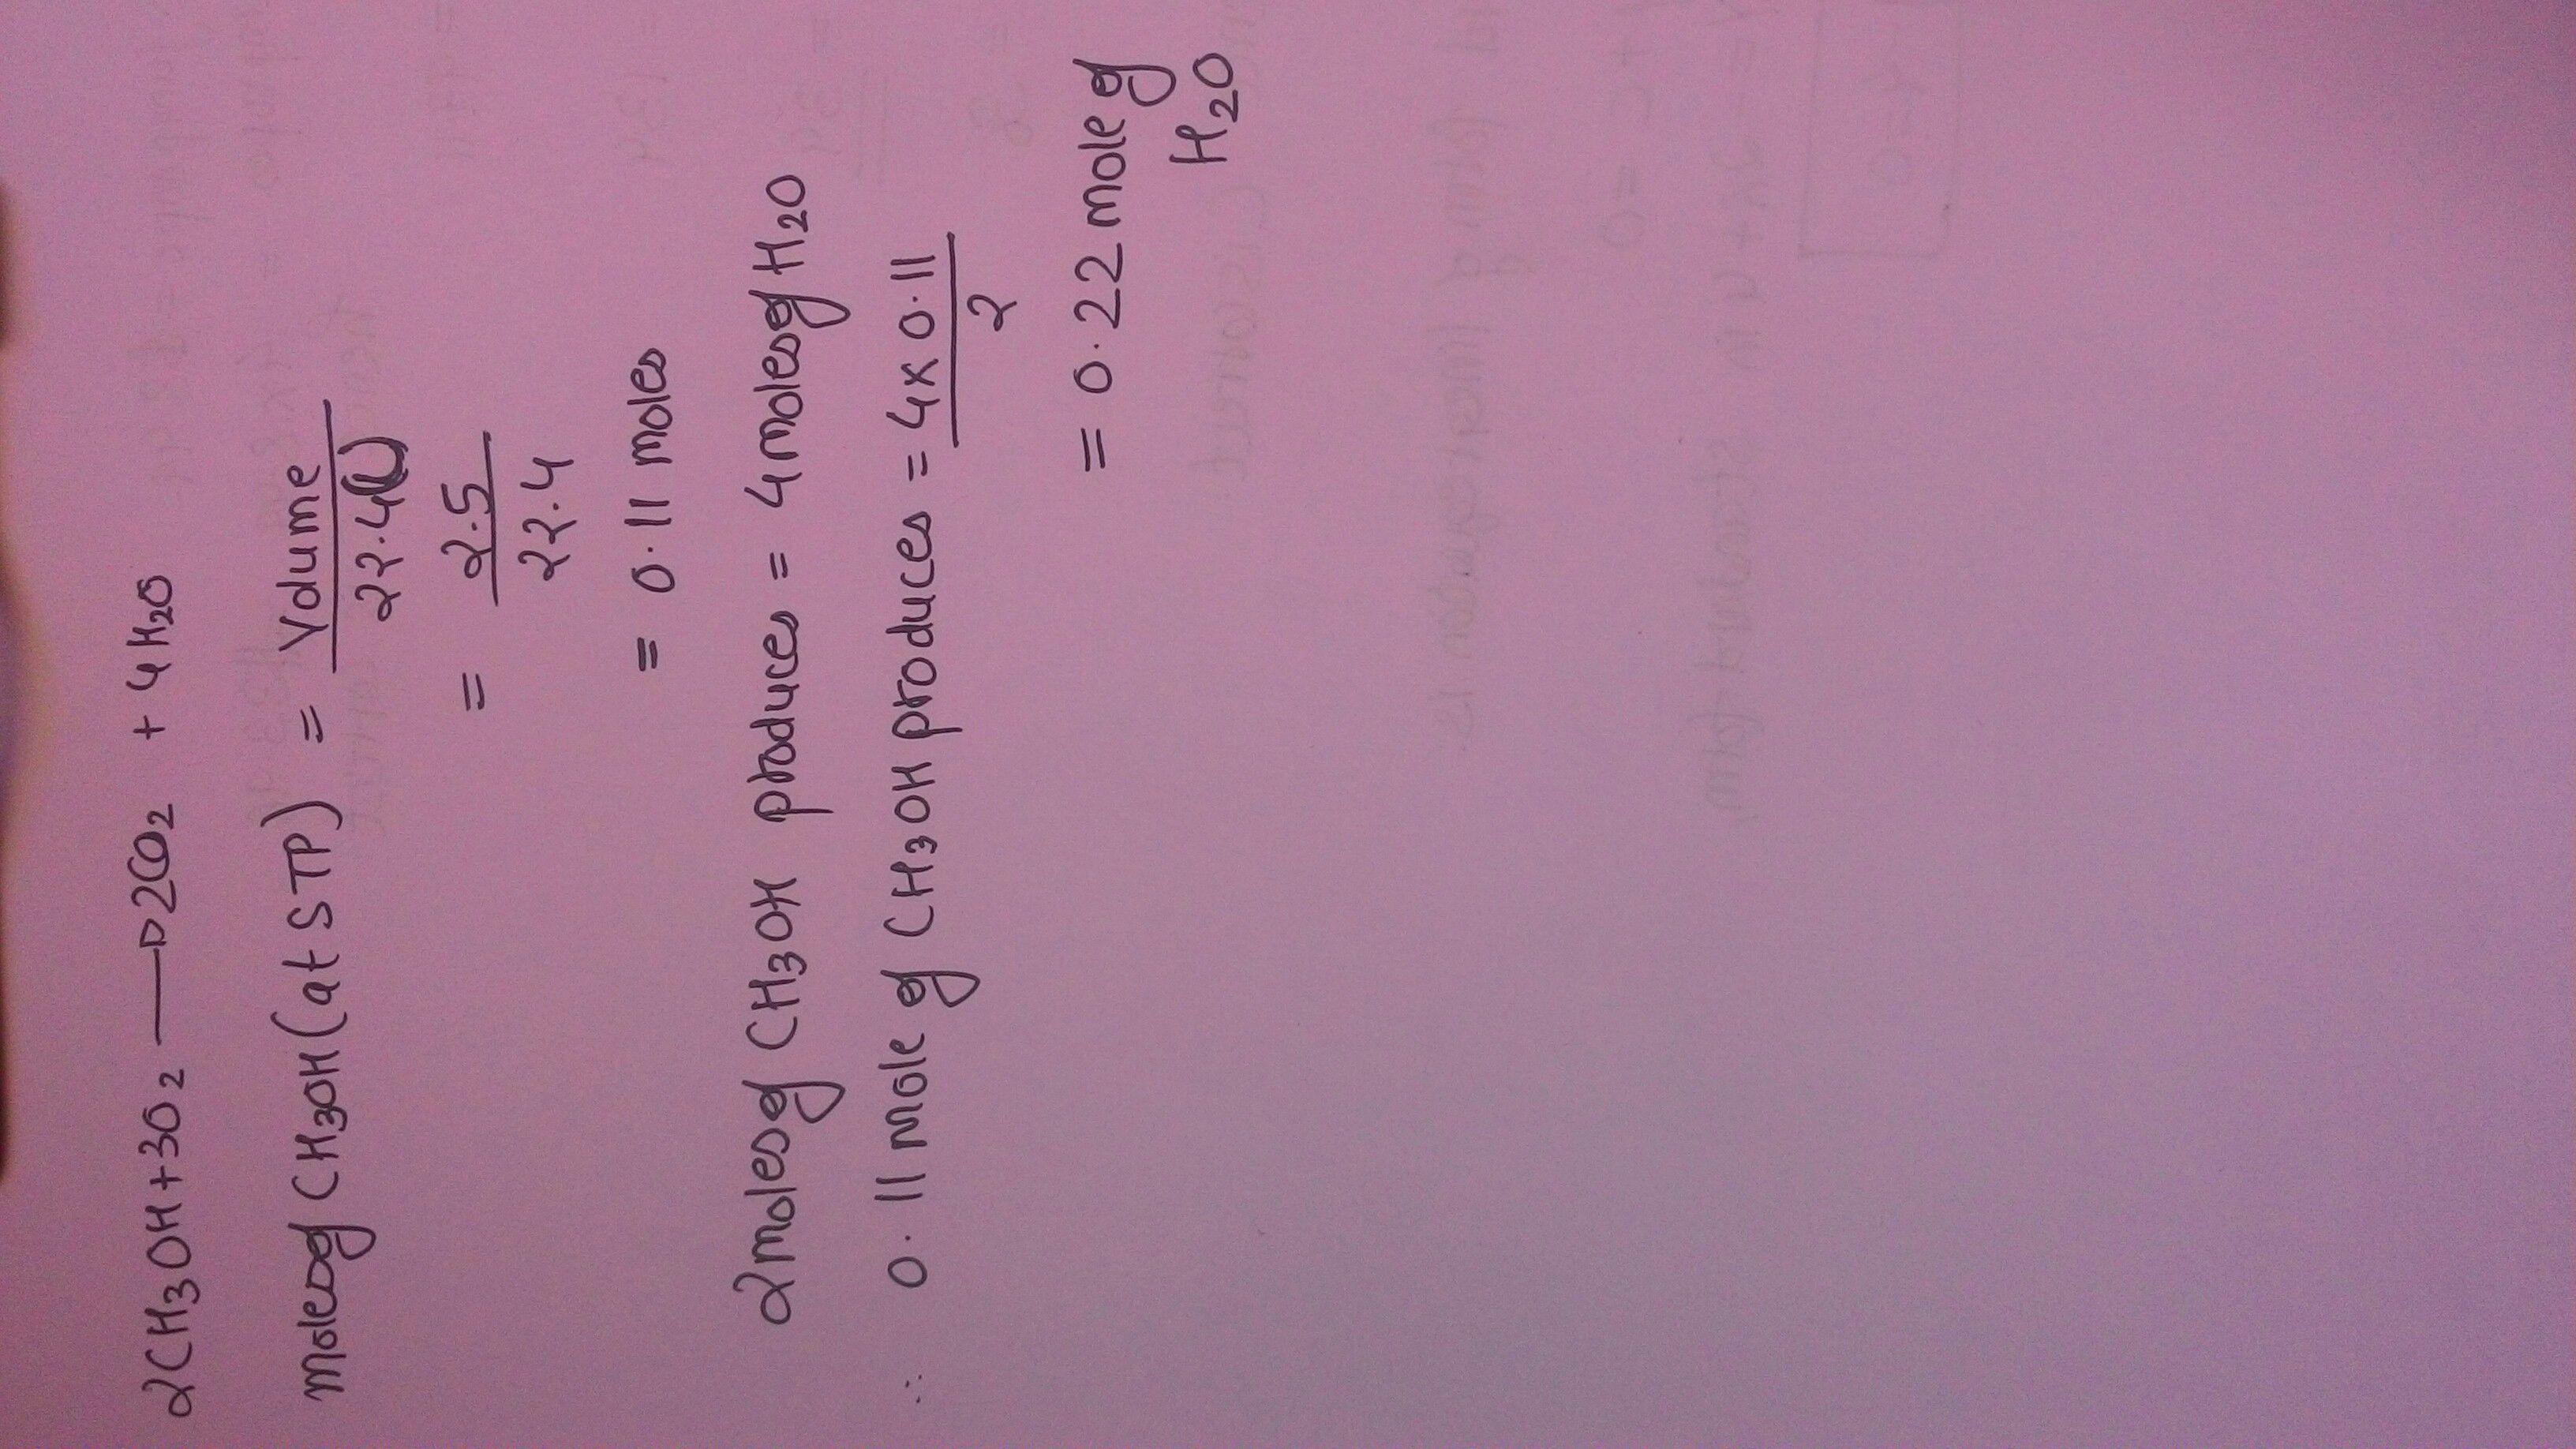 2CH3OH+3O2 → 2CO2 + 4H2O
moles of CH3OH (at STP) = Volume
22.4(L)
= 2.5
22.4
= 0.11 moles
2 moles of CH3OH produces = 4 moles of H2O
∴ 0.11 mole of CH3OH produces = 4 x 0.11
2
= 0.22 mole of
H2O